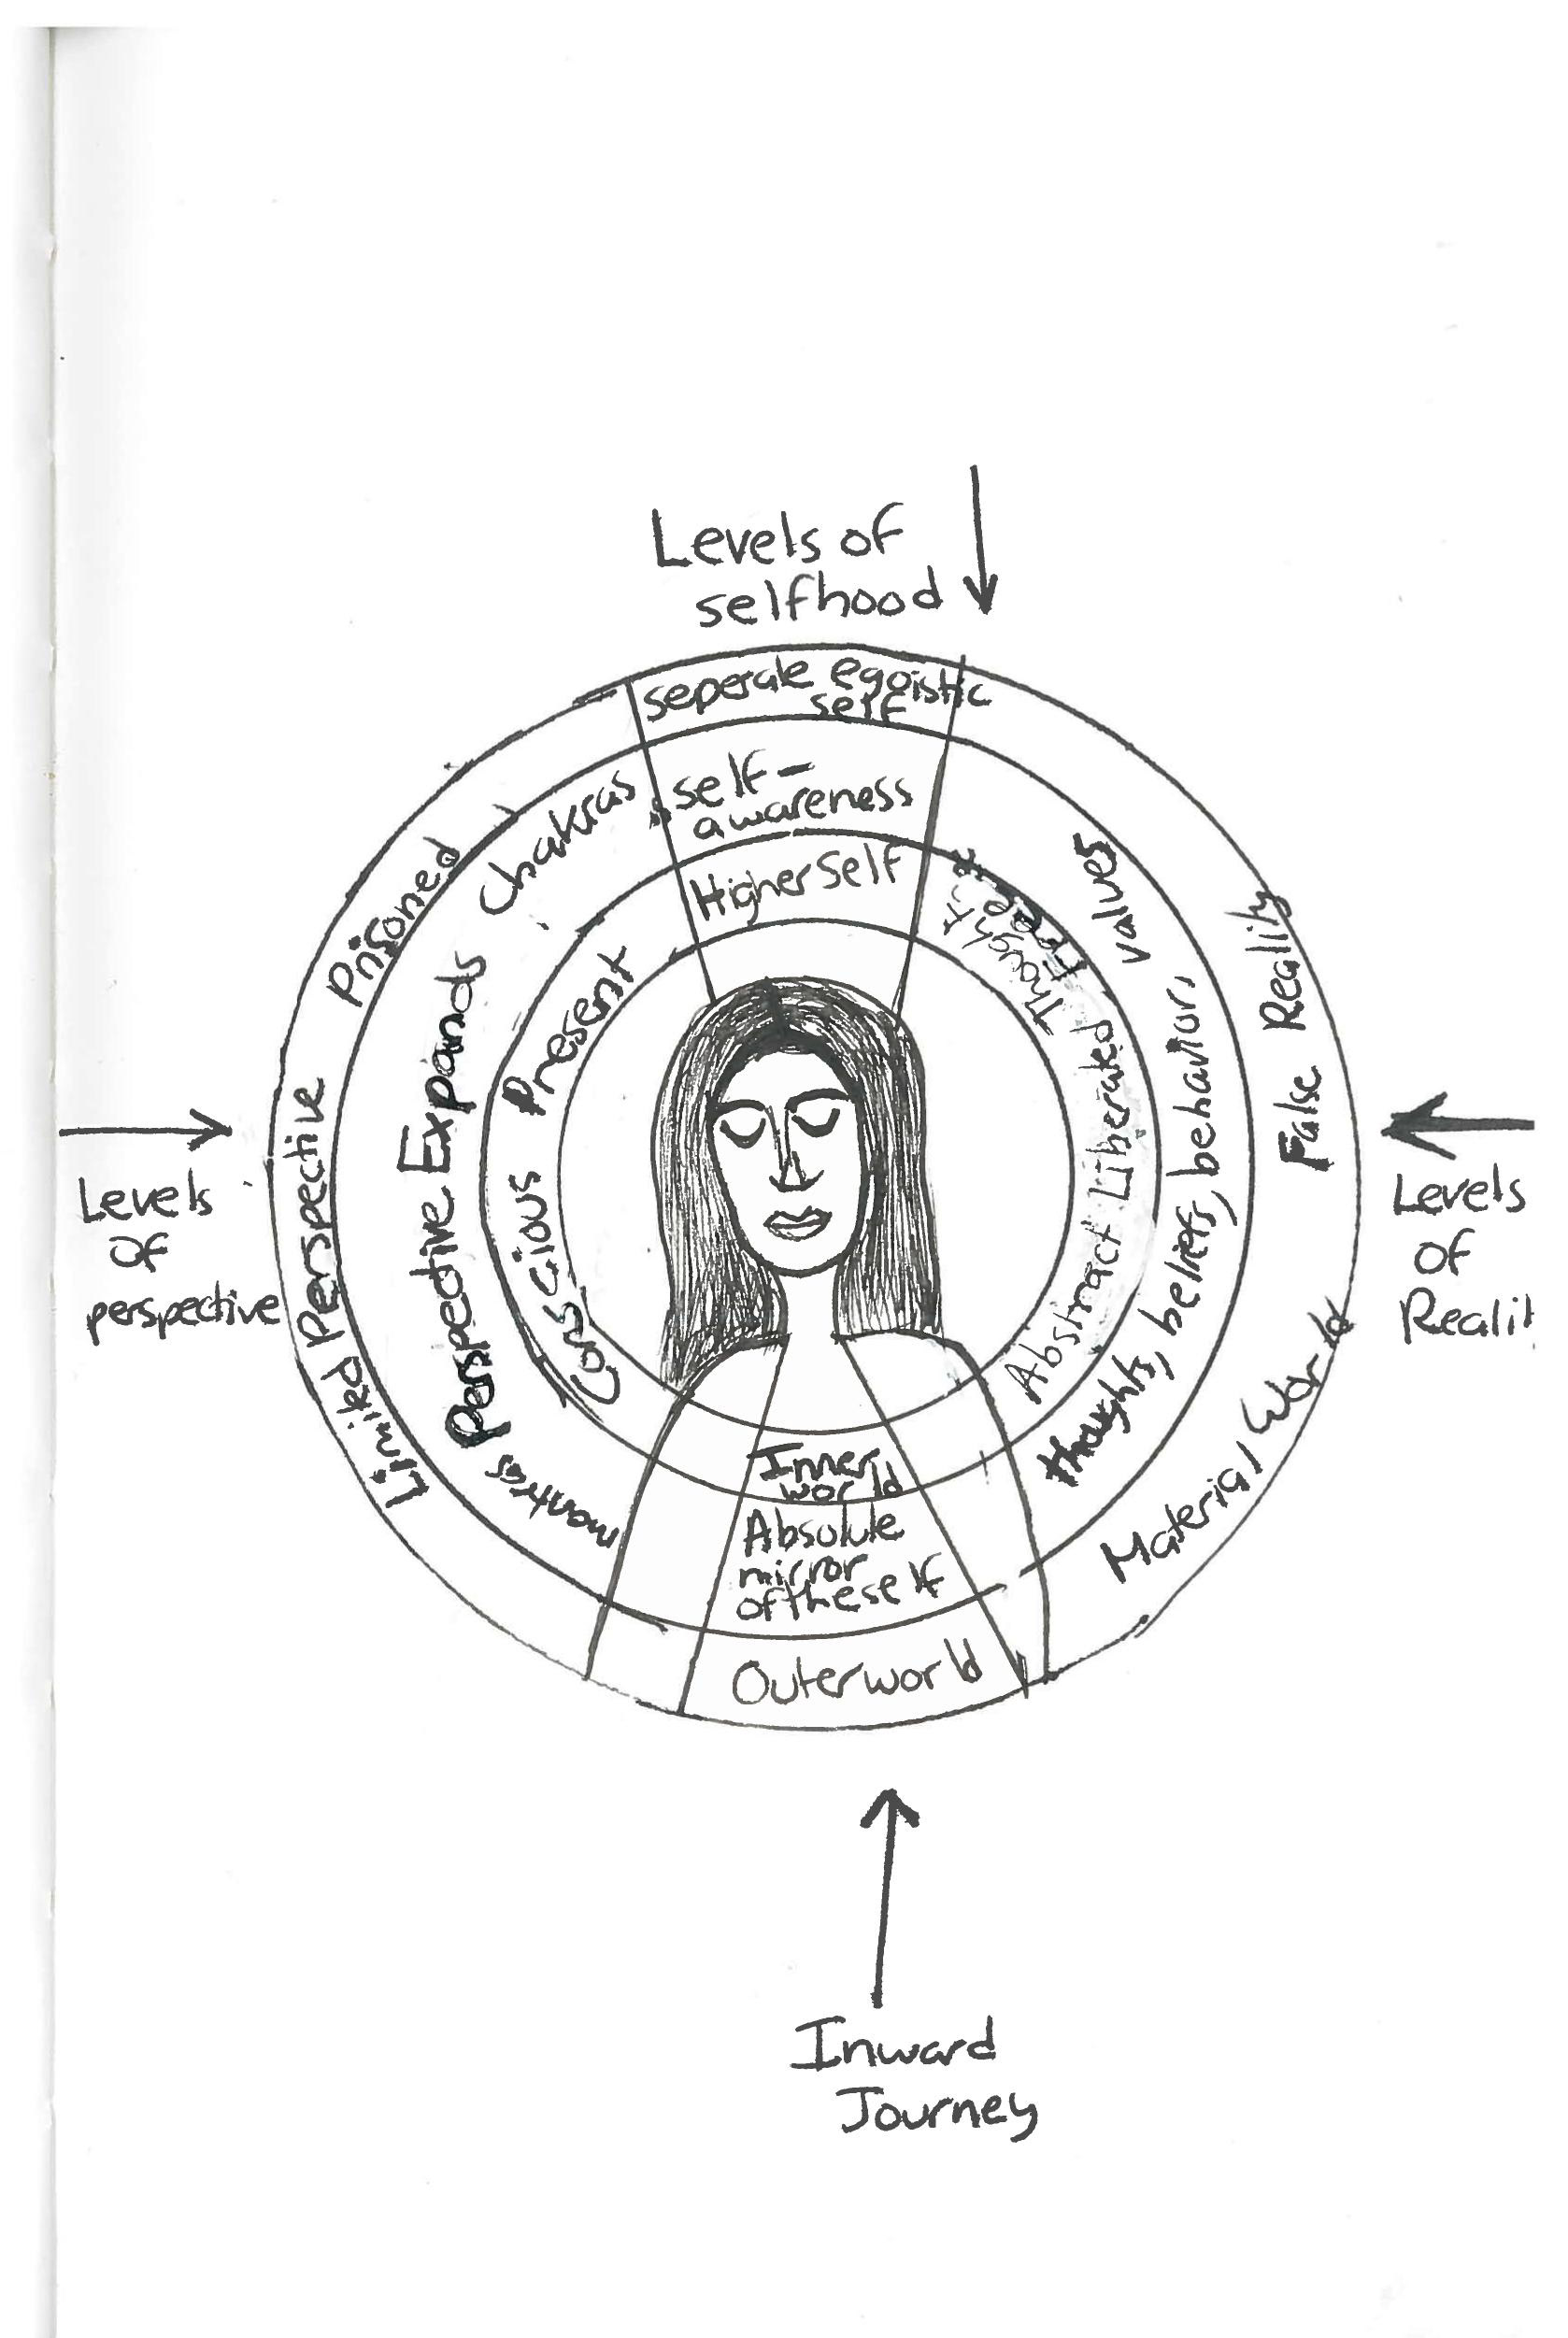 Levels of
selfhood
seperate egoistic
self
self-
awareness
Higher Self
Prisoned
Limited Perspective
Chakras
Perspective Expands
mantras
Conscious Present
Thought
Free
Abstract Liberated
values
thoughts, beliefs, behavior,
False Reality
Material World
Levels
Of
perspective
Levels
OF
Realit
Inner
world
Absolute
mirror
of the self
Outerworld
Inward
Journey